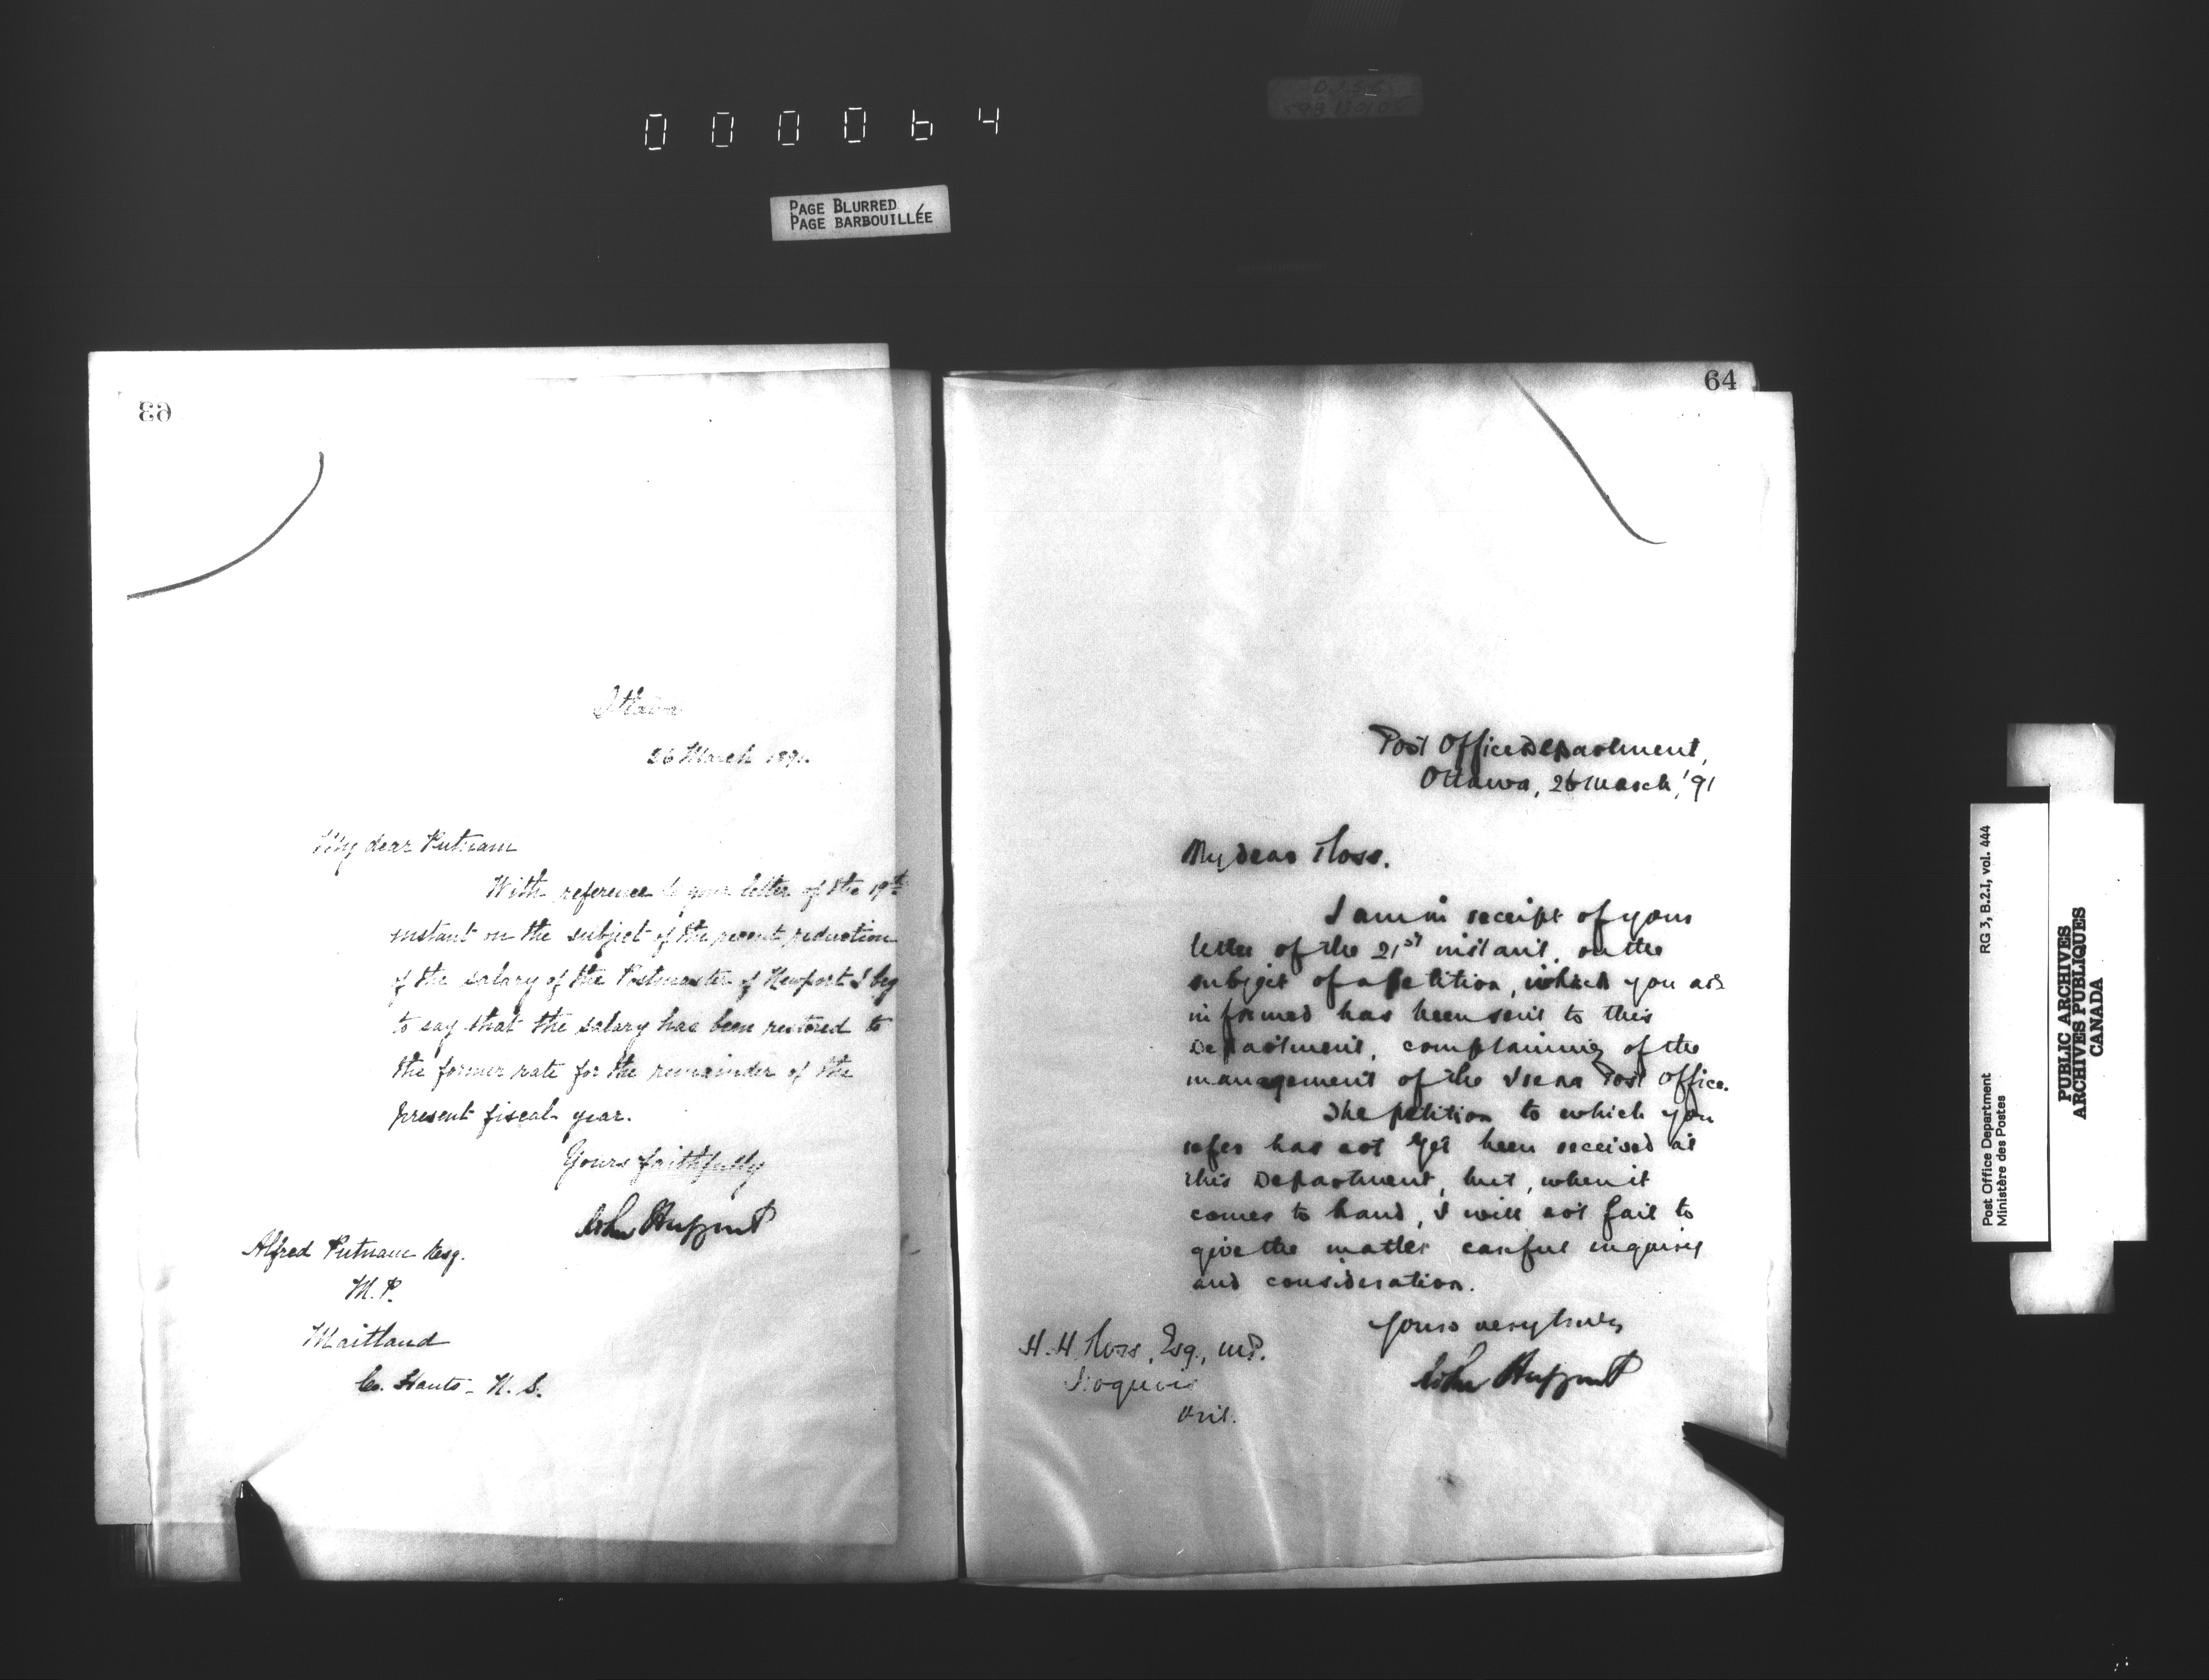 000064
PAGE BLURRED
PAGE BARBOUILLÉE
63
Ottawa
26 March 1891.
My dear Putnam
With reference to your letter of the 19th
instant on the subject of the recent reduction
of the salary of the Postmaster of Newport I beg
to say that the salary has been restored to
the former rate for the remainder of the
present fiscal year.
Yours faithfully
John Haggart
Alfred Putnam Esq.
M.P.
Maitland
Co. Hants - N.S.
64
Post Office Department,
Ottawa, 26 March, '91
My dear Ross.
I am in receipt of your
letter of the 21st instant, on the
subject of a petition, which you are
informed has been sent to this
Department, complaining of the
management of the Irena Post Office.
The petition to which you
refer has not yet been received at
this Department, but, when it
comes to hand, I will not fail to
give the matter careful inquiry
and consideration.
Yours very truly,
John Haggart
H. H. Ross, Esq., M.P.
Iroquois
Ont.
Post Office Department RG 3, B.2.I, vol. 444
Ministère des Postes
PUBLIC ARCHIVES
ARCHIVES PUBLIQUES
CANADA